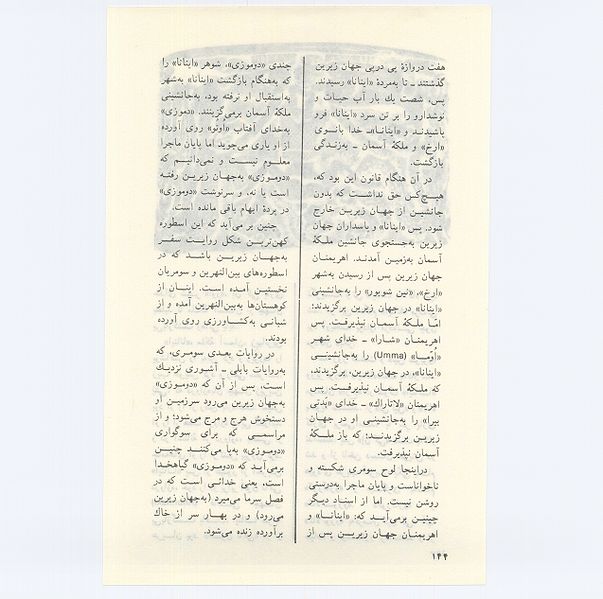 هفت دروازهٔ پی درپی جهان زیرین
گذشتند ـ تا به‌مردهٔ «اینانا» رسیدند.
پس، شصت یك بار آب حیات و
نوشدارو را بر تن سرد «اینانا» فرو
پاشیدند و «اینانا»ـ خدا بانوی
«ارخ» و ملکهٔ آسمان ـ به‌زندگی
بازگشت.
در آن هنگام قانون این بود که،
هیچ‌کس حق نداشت که بدون
جانشین از جهان زیرین خارج
شود. پس «اینانا» و پاسداران جهان
زیرین به‌جستجوی جانشین ملکهٔ
آسمان به‌زمین آمدند. اهریمنان
جهان زیرین پس از رسیدن به‌شهر
«ارخ»، «نین شوبور» را به‌جانشینی
«اینانا» در جهان زیرین برگزیدند؛
امّا ملکهٔ آسمان نپذیرفت. پس
اهریمنان «شارا» ـ خدای شهر
«اومّا» (Umma) را به‌جانشینی
«اینانا»، در جهان زیرین، برگزیدند،
که ملکهٔ آسمان نپذیرفت. پس
اهریمنان «لاتاراك» ـ خدای «بَدتی
بیرا» را به‌جانشینی او در جهان
زیرین برگزیدند؛ که باز ملکهٔ
آسمان نپذیرفت.
دراینجا لوح سومری شکسته و
ناخواناست و پایان ماجرا به‌درستی
روشن نیست. اما از اسناد دیگر
چنین برمی‌آید که: «اینانا» و
اهریمنان جهان زیرین پس از
چندی «دوموزی»، شوهر «اینانا» را
که به‌هنگام بازگشت «اینانا» به‌شهر
به‌استقبال او نرفته بود، به‌جانشینی
ملکهٔ آسمان برمی‌گزینند. «دموزی»
به‌خدای آفتاب «اُوتُو» روی آورده
از او یاری می‌جوید اما پایان ماجرا
معلوم نیست و نمی‌دانیم که
«دوموزی» به‌جهان زیرین رفته
است یا نه، و سرنوشت «دوموزی»
در پردهٔ ابهام باقی مانده است.
چنین بر می‌آید که این اسطوره
کهن‌ترین شکل روایت سفر
به‌جهان زیرین باشد که در
اسطوره‌های بین‌النهرین و سومریان
نخستین آمده است. اینان از
کوهستان‌ها به‌بین‌النهرین آمده و از
شبانی به‌کشاورزی روی آورده
بودند.
در روایات بعدی سومری، که
به‌روایات بابلی ـ آشوری نزدیك
است، پس از آن که «دوموزی»
به‌جهان زیرین می‌رود سرزمین او
دستخوش هرج و مرج می‌شود؛ و از
مراسمی که برای سوگواری
«دوموزی» به‌پا می‌کنند چنین
برمی‌آید که «دوموزی» گیاهخدا
است، یعنی خدائی است که در
فصل سرما می‌میرد (به‌جهان زیرین
می‌رود) و در بهار سر از خاك
برآورده زنده می‌شود.
۱۴۴